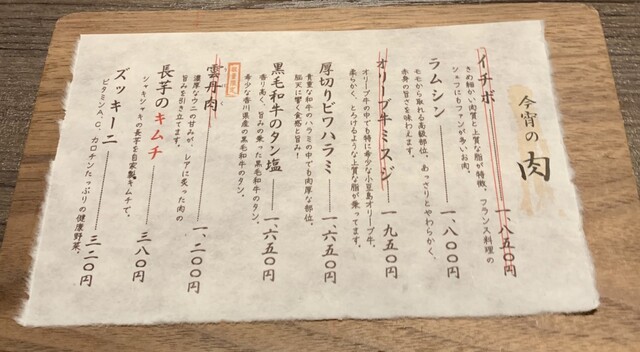 今宵の肉
イチボ 一、八五〇円
きめ細かい肉質と上質な脂が特徴。フランス料理の
シェフにもファンが多いお肉。
ラムシン 一、八〇〇円
モモから取れる高級部位。あっさりとやわらかく、
赤身の旨さを味わえます。
オリーブ牛ミスジ 一、九五〇円
オリーブ牛の中でも特に希少な小豆島オリーブ牛。
柔らかく、とろけるような上質な脂が乗ってます。
厚切りビワハラミ 一、六五〇円
貴重な和牛のハラミの中でも肉厚な部位。
脳天に響く食感と旨み!
黒毛和牛のタン塩 一、六五〇円
香り高く、旨みの乗った黒毛和牛のタン。
希少な香川県産の黒毛和牛のタン。
数量限定
雲丹肉 一、二〇〇円
濃厚なウニの甘みが、レアに炙った肉の
旨みを引き立てます。
長芋のキムチ 三八〇円
シャキシャキの長芋を自家製キムチで。
ズッキーニ 三二〇円
ビタミンA、C、カロチンたっぷりの健康野菜。